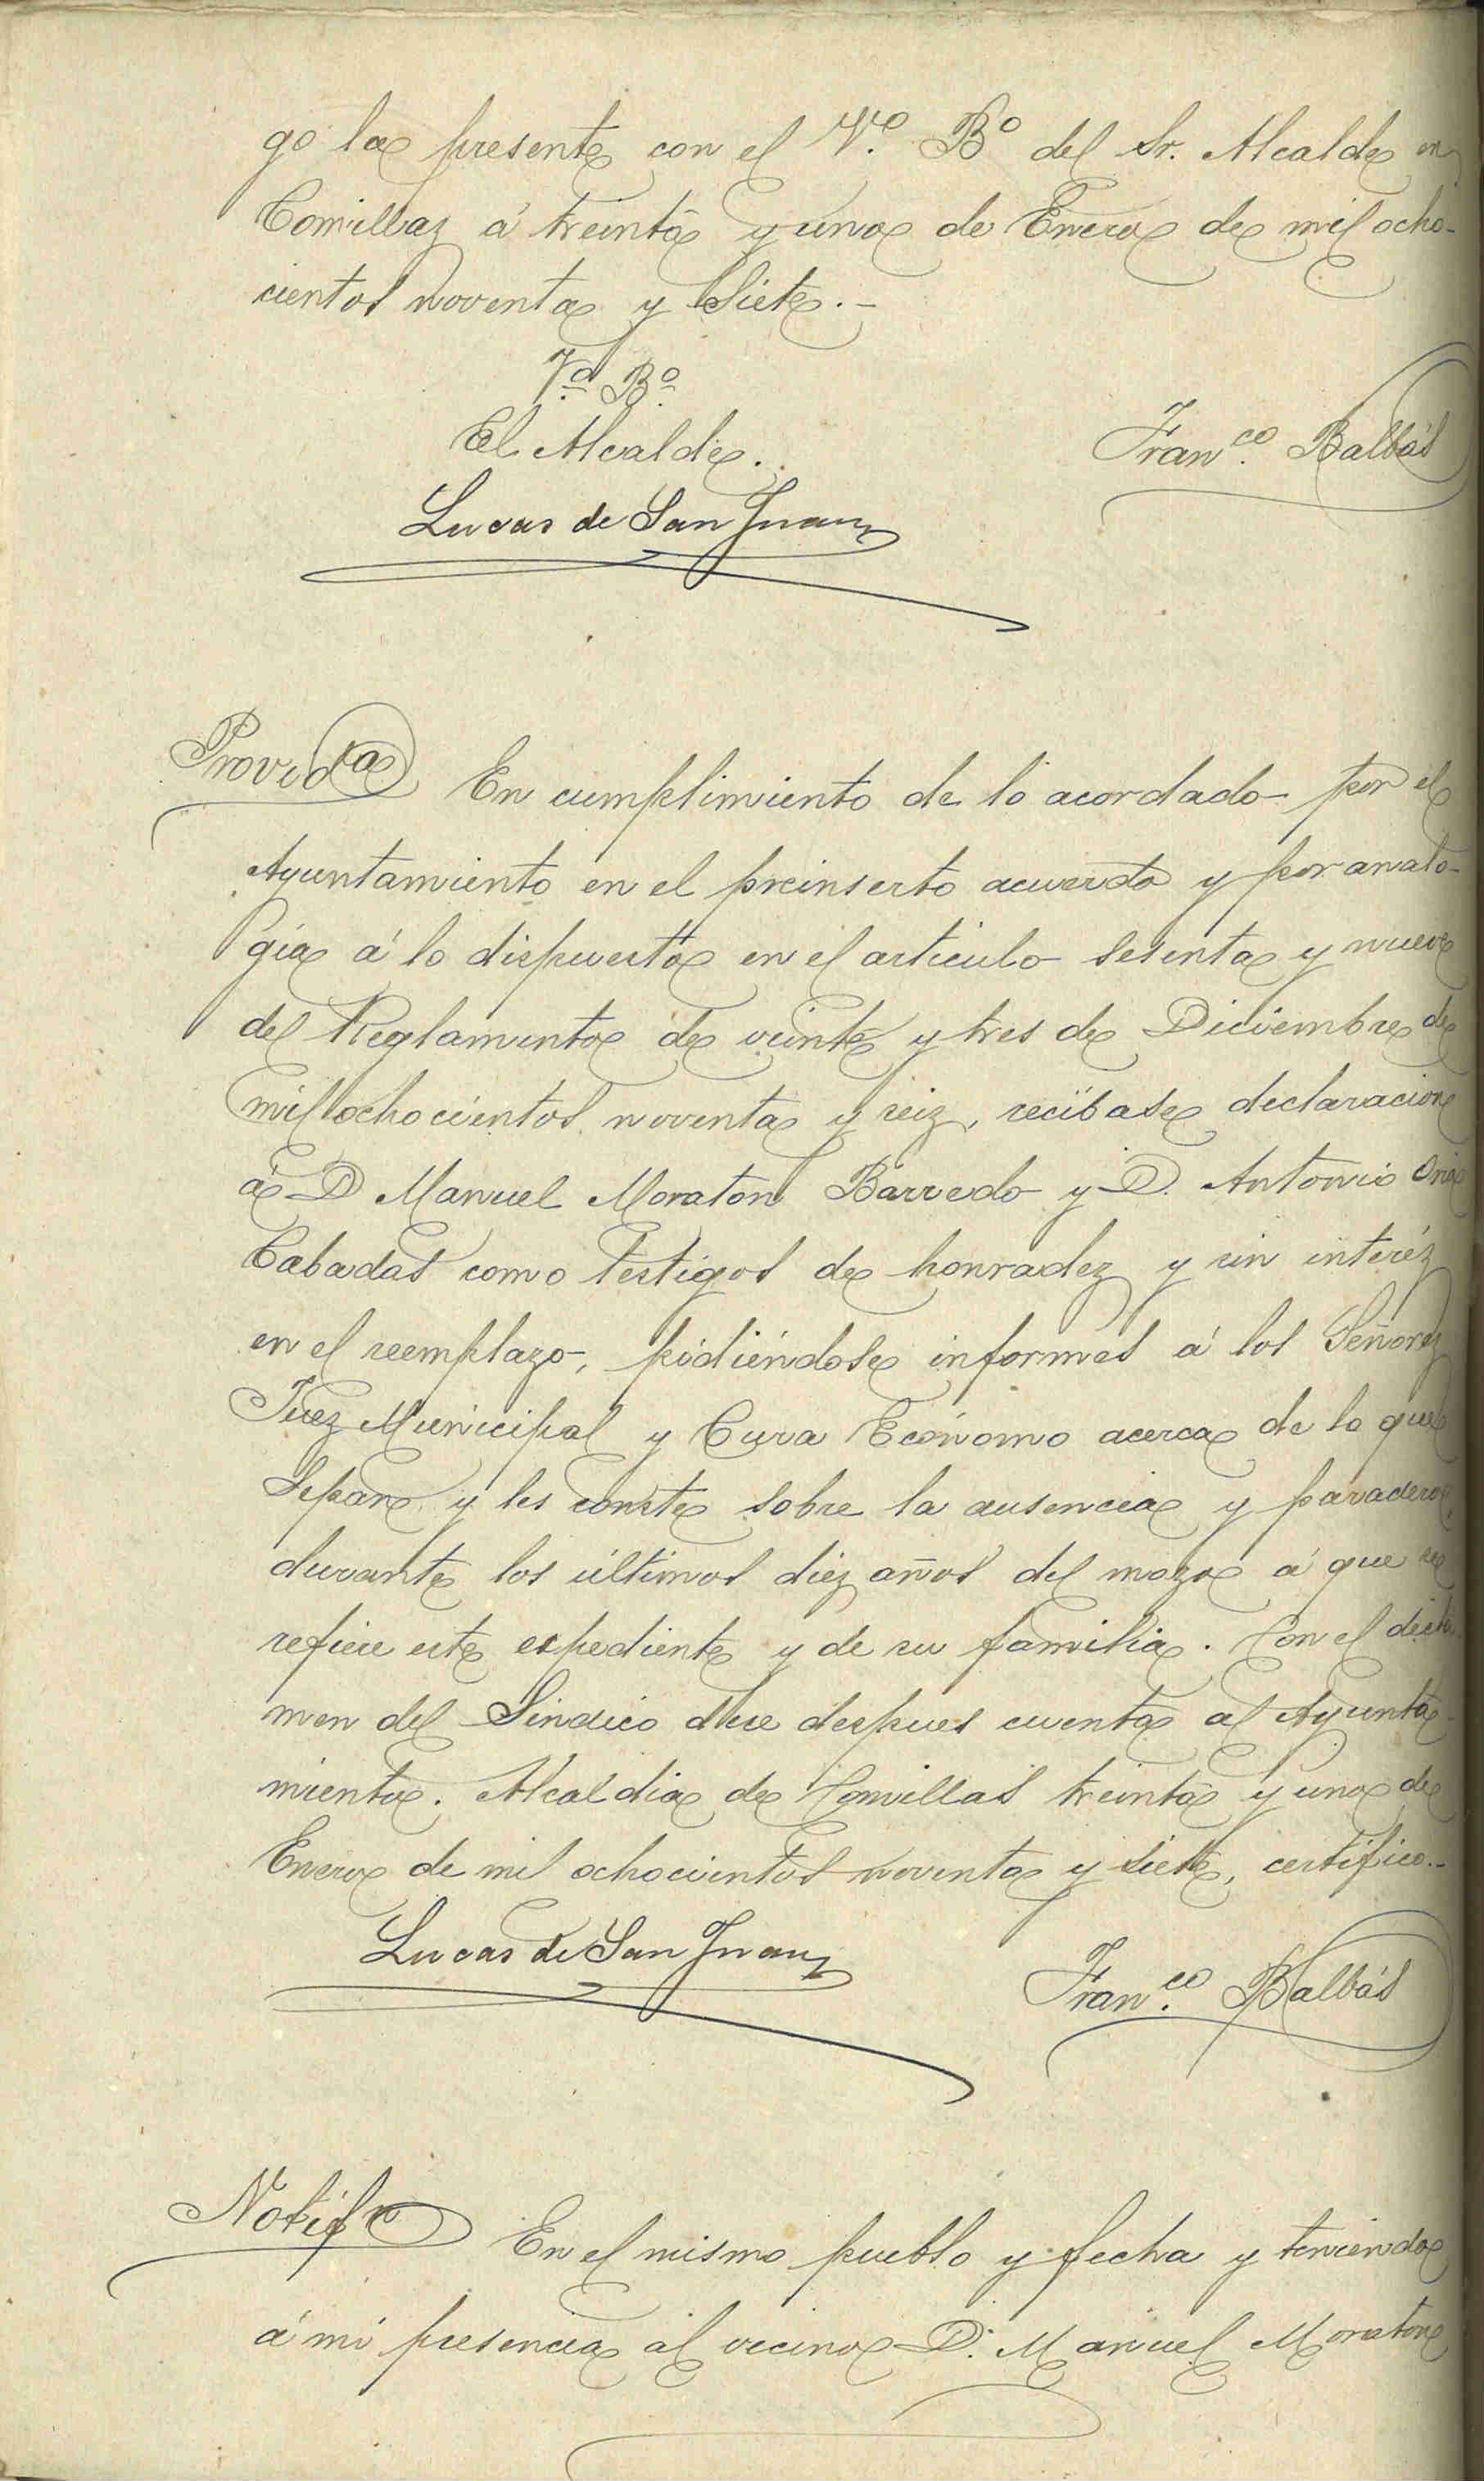 go la presente con el V.º Bº del Sr. Alcalde en
Comillas á treinta y uno de Enero de mil ocho-
cientos noventa y Siete.-
V.º Bº
El Alcalde.
Franco. Balbás
Lucas de San Juan
Provida
En cumplimiento de lo acordado por el
Ayuntamiento en el preinserto acuerdo y por analo-
gía á lo dispuesto en el articulo sesenta y nueve
del Reglamento de veinte y tres de Diciembre de
mil ochocientos noventa y seiz, recíbase declaracion
á D Manuel Moraton Barredo y D. Antonio
Cabadas como testigos de honradez y sin interéz
en el reemplazo, pidiéndose informes á los Señores
Juez Municipal y Cura Ecónomo acerca de lo que
Sepan y les conste sobre la ausencia y paradero
durante los últimos diez años del mozo á que se
refiere este espediente y de su familia. Con el dictá-
men del Sindico dése despues cuenta al Ayunta-
miento. Alcaldia de Comillas treinta y uno de
Enero de mil ochocientos noventa y siete, certifico.-
Lucas de San Juan
Franco. Balbás
Notifn
En el mismo pueblo y fecha y teniendo
á mi presencia al vecino D. Manuel Moraton